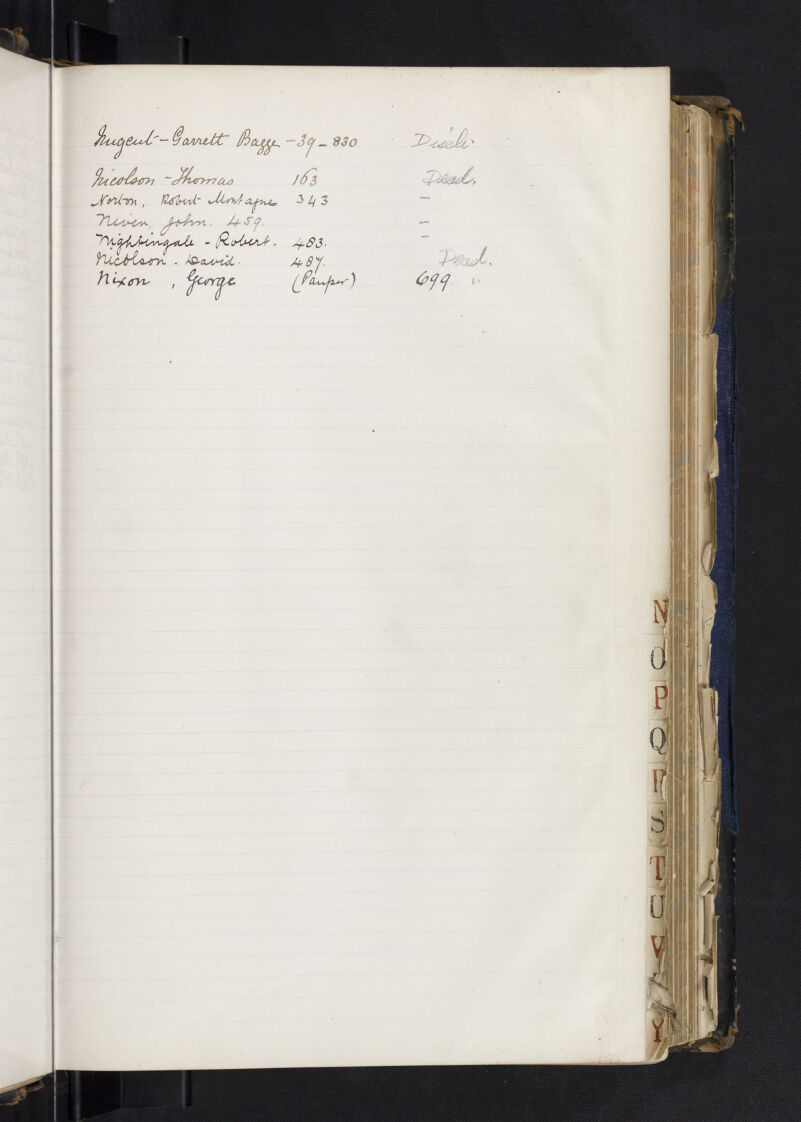 Nugent - Garrett Bagge - 39 - 830 Disch.
Nicolson - Thomas 163 Dead.
Norton, Robert Montagne 343 -
Niven, John. 459. -
Nightingale - Robert. 483. -
Nicolson - David. 487. Dead.
Nixon, George (Pauper) 699 "
N
O
P
Q
R
S
T
U
V
Y